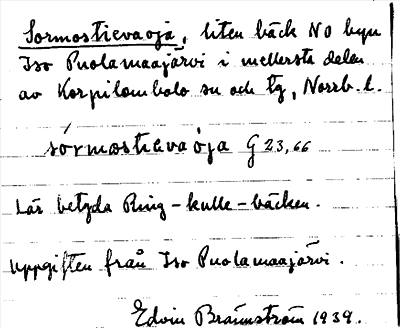 Sormostievaoja, liten bäck NO byn
Iso Puolamaajärvi i mellersta delen
av Korpilombolo sn och tg, Norrb. l.
sórmostieva òja G 23,66
Lär betyda Ring-kulle-bäcken.
Uppgiften från Iso Puolamaajärvi.
Edvin Brännström 1939.